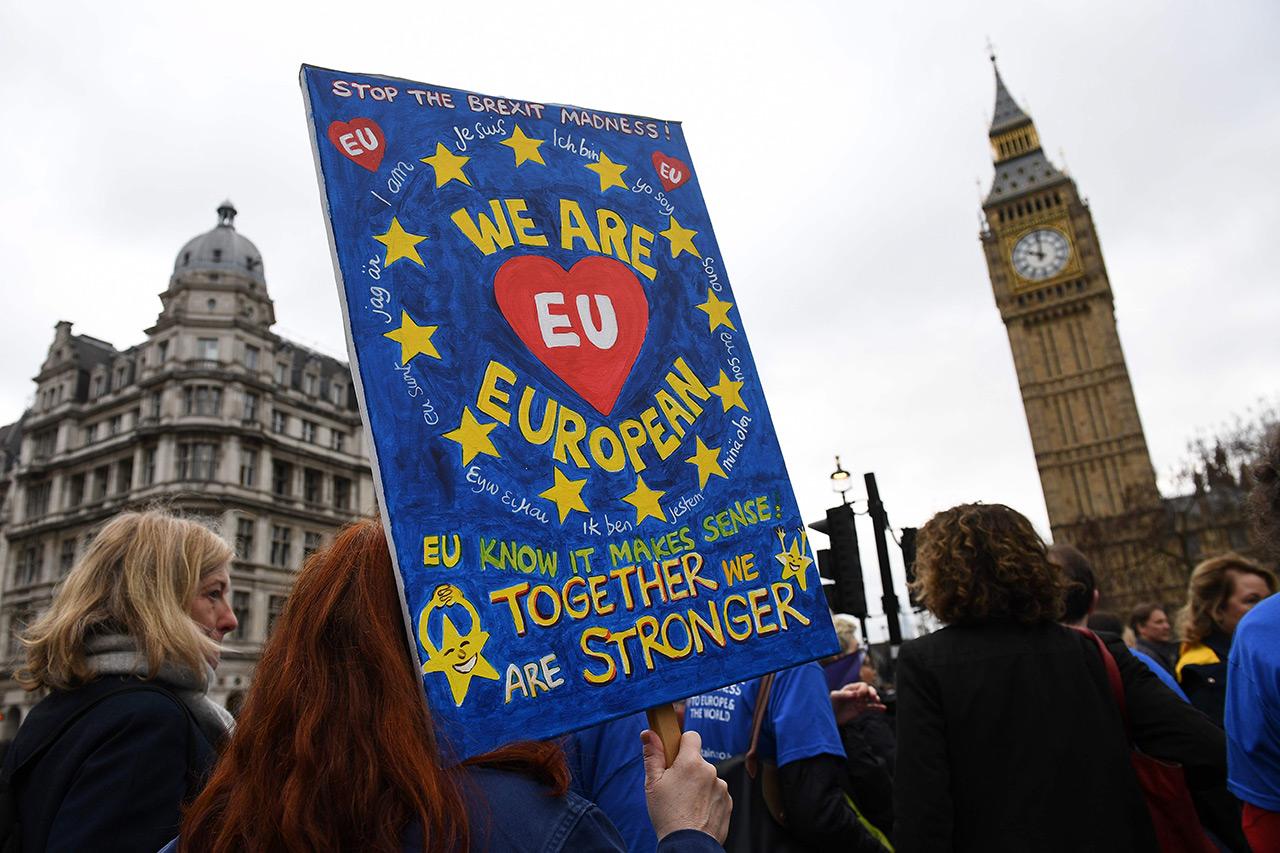 STOP THE BREXIT MADNESS!
EU
EU
I am
Je suis
Ich bin
yo soy
sono
nous sommes
minä olen
jestem
Ik ben
Εγω ειμαι
eu sunt
jag är
WE ARE
EU
EUROPEAN
EU KNOW IT MAKES SENSE!
TOGETHER WE
ARE STRONGER
TO EUROPE &
THE WORLD